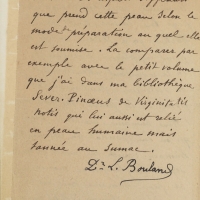 que prend cette peau selon le
mode de préparation auquel elle
est soumise. La comparer par
exemple avec le petit volume
que j'ai dans ma bibliothèque
Sever. Pinaeus de Virginitatis
notis qui lui aussi est relié
en peau humaine mais
tannée au sumac.
Dr. L. Bouland